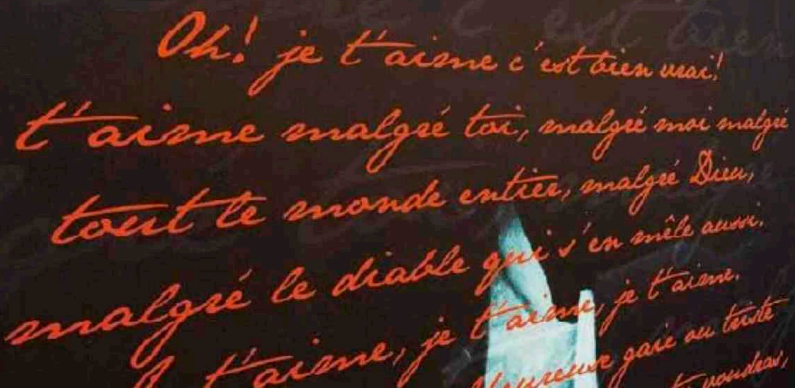 Oh! je t'aime c'est bien vrai!
t'aime malgré toi, malgré moi malgré
tout le monde entier, malgré Dieu,
malgré le diable qui s'en mêle aussi.
t'aime, je t'aime, je t'aime.
Heureuse gaie ou triste
voudras,